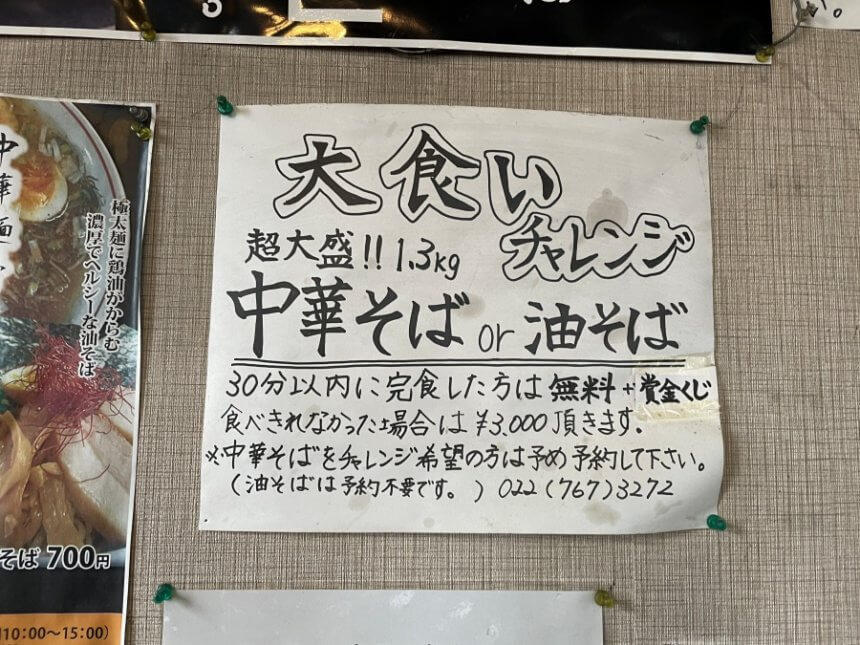 大食い
チャレンジ
超大盛!! 1.3kg
中華そば or 油そば
30分以内に完食した方は無料+賞金くじ
食べきれなかった場合は¥3,000頂きます。
※中華そばをチャレンジ希望の方は予め予約して下さい。
(油そばは予約不要です。) 022(767)3272
中華
極太麺に鶏油がからむ
濃厚でヘルシーな油そば
そば 700円
10:00~15:00)